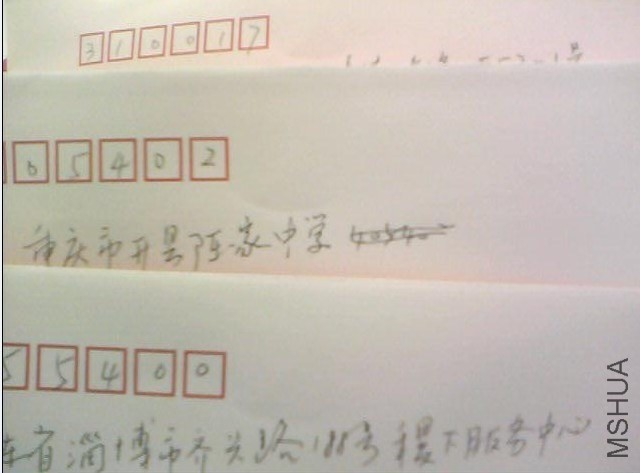 310017
05402
重庆市开县陈家中学
55400
东省淄博市齐兴路188号稷下服务中心
MSHUA